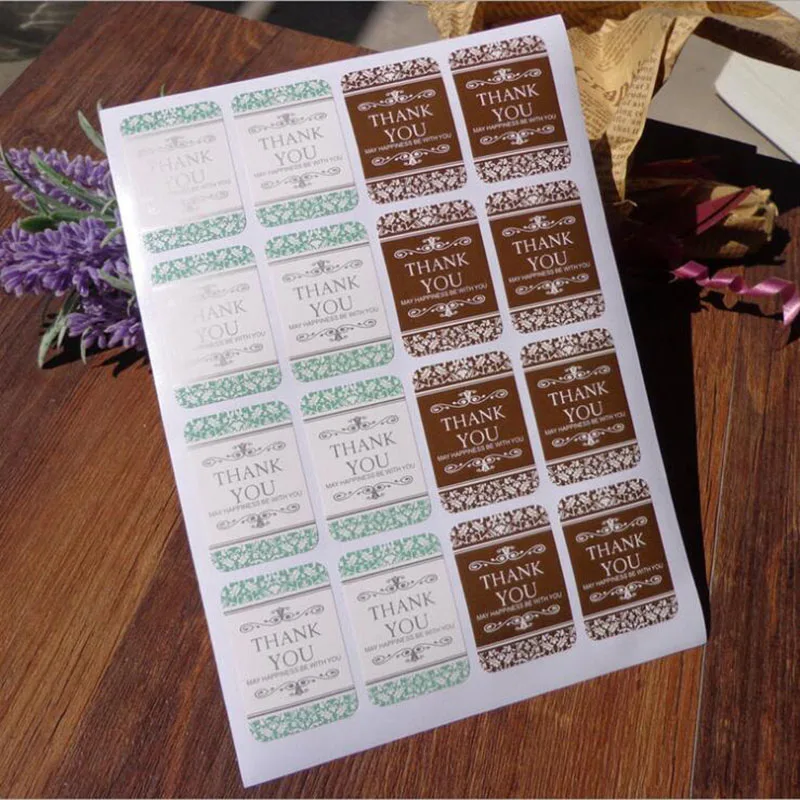 THANK
YOU
MAY HAPPINESS BE WITH YOU
THANK
YOU
MAY HAPPINESS BE WITH YOU
THANK
YOU
MAY HAPPINESS BE WITH YOU
THANK
YOU
MAY HAPPINESS BE WITH YOU
THANK
YOU
MAY HAPPINESS BE WITH YOU
THANK
YOU
MAY HAPPINESS BE WITH YOU
THANK
YOU
MAY HAPPINESS BE WITH YOU
THANK
YOU
MAY HAPPINESS BE WITH YOU
THANK
YOU
MAY HAPPINESS BE WITH YOU
THANK
YOU
MAY HAPPINESS BE WITH YOU
THANK
YOU
MAY HAPPINESS BE WITH YOU
THANK
YOU
MAY HAPPINESS BE WITH YOU
THANK
YOU
MAY HAPPINESS BE WITH YOU
THANK
YOU
MAY HAPPINESS BE WITH YOU
THANK
YOU
MAY HAPPINESS BE WITH YOU
THANK
YOU
MAY HAPPINESS BE WITH YOU